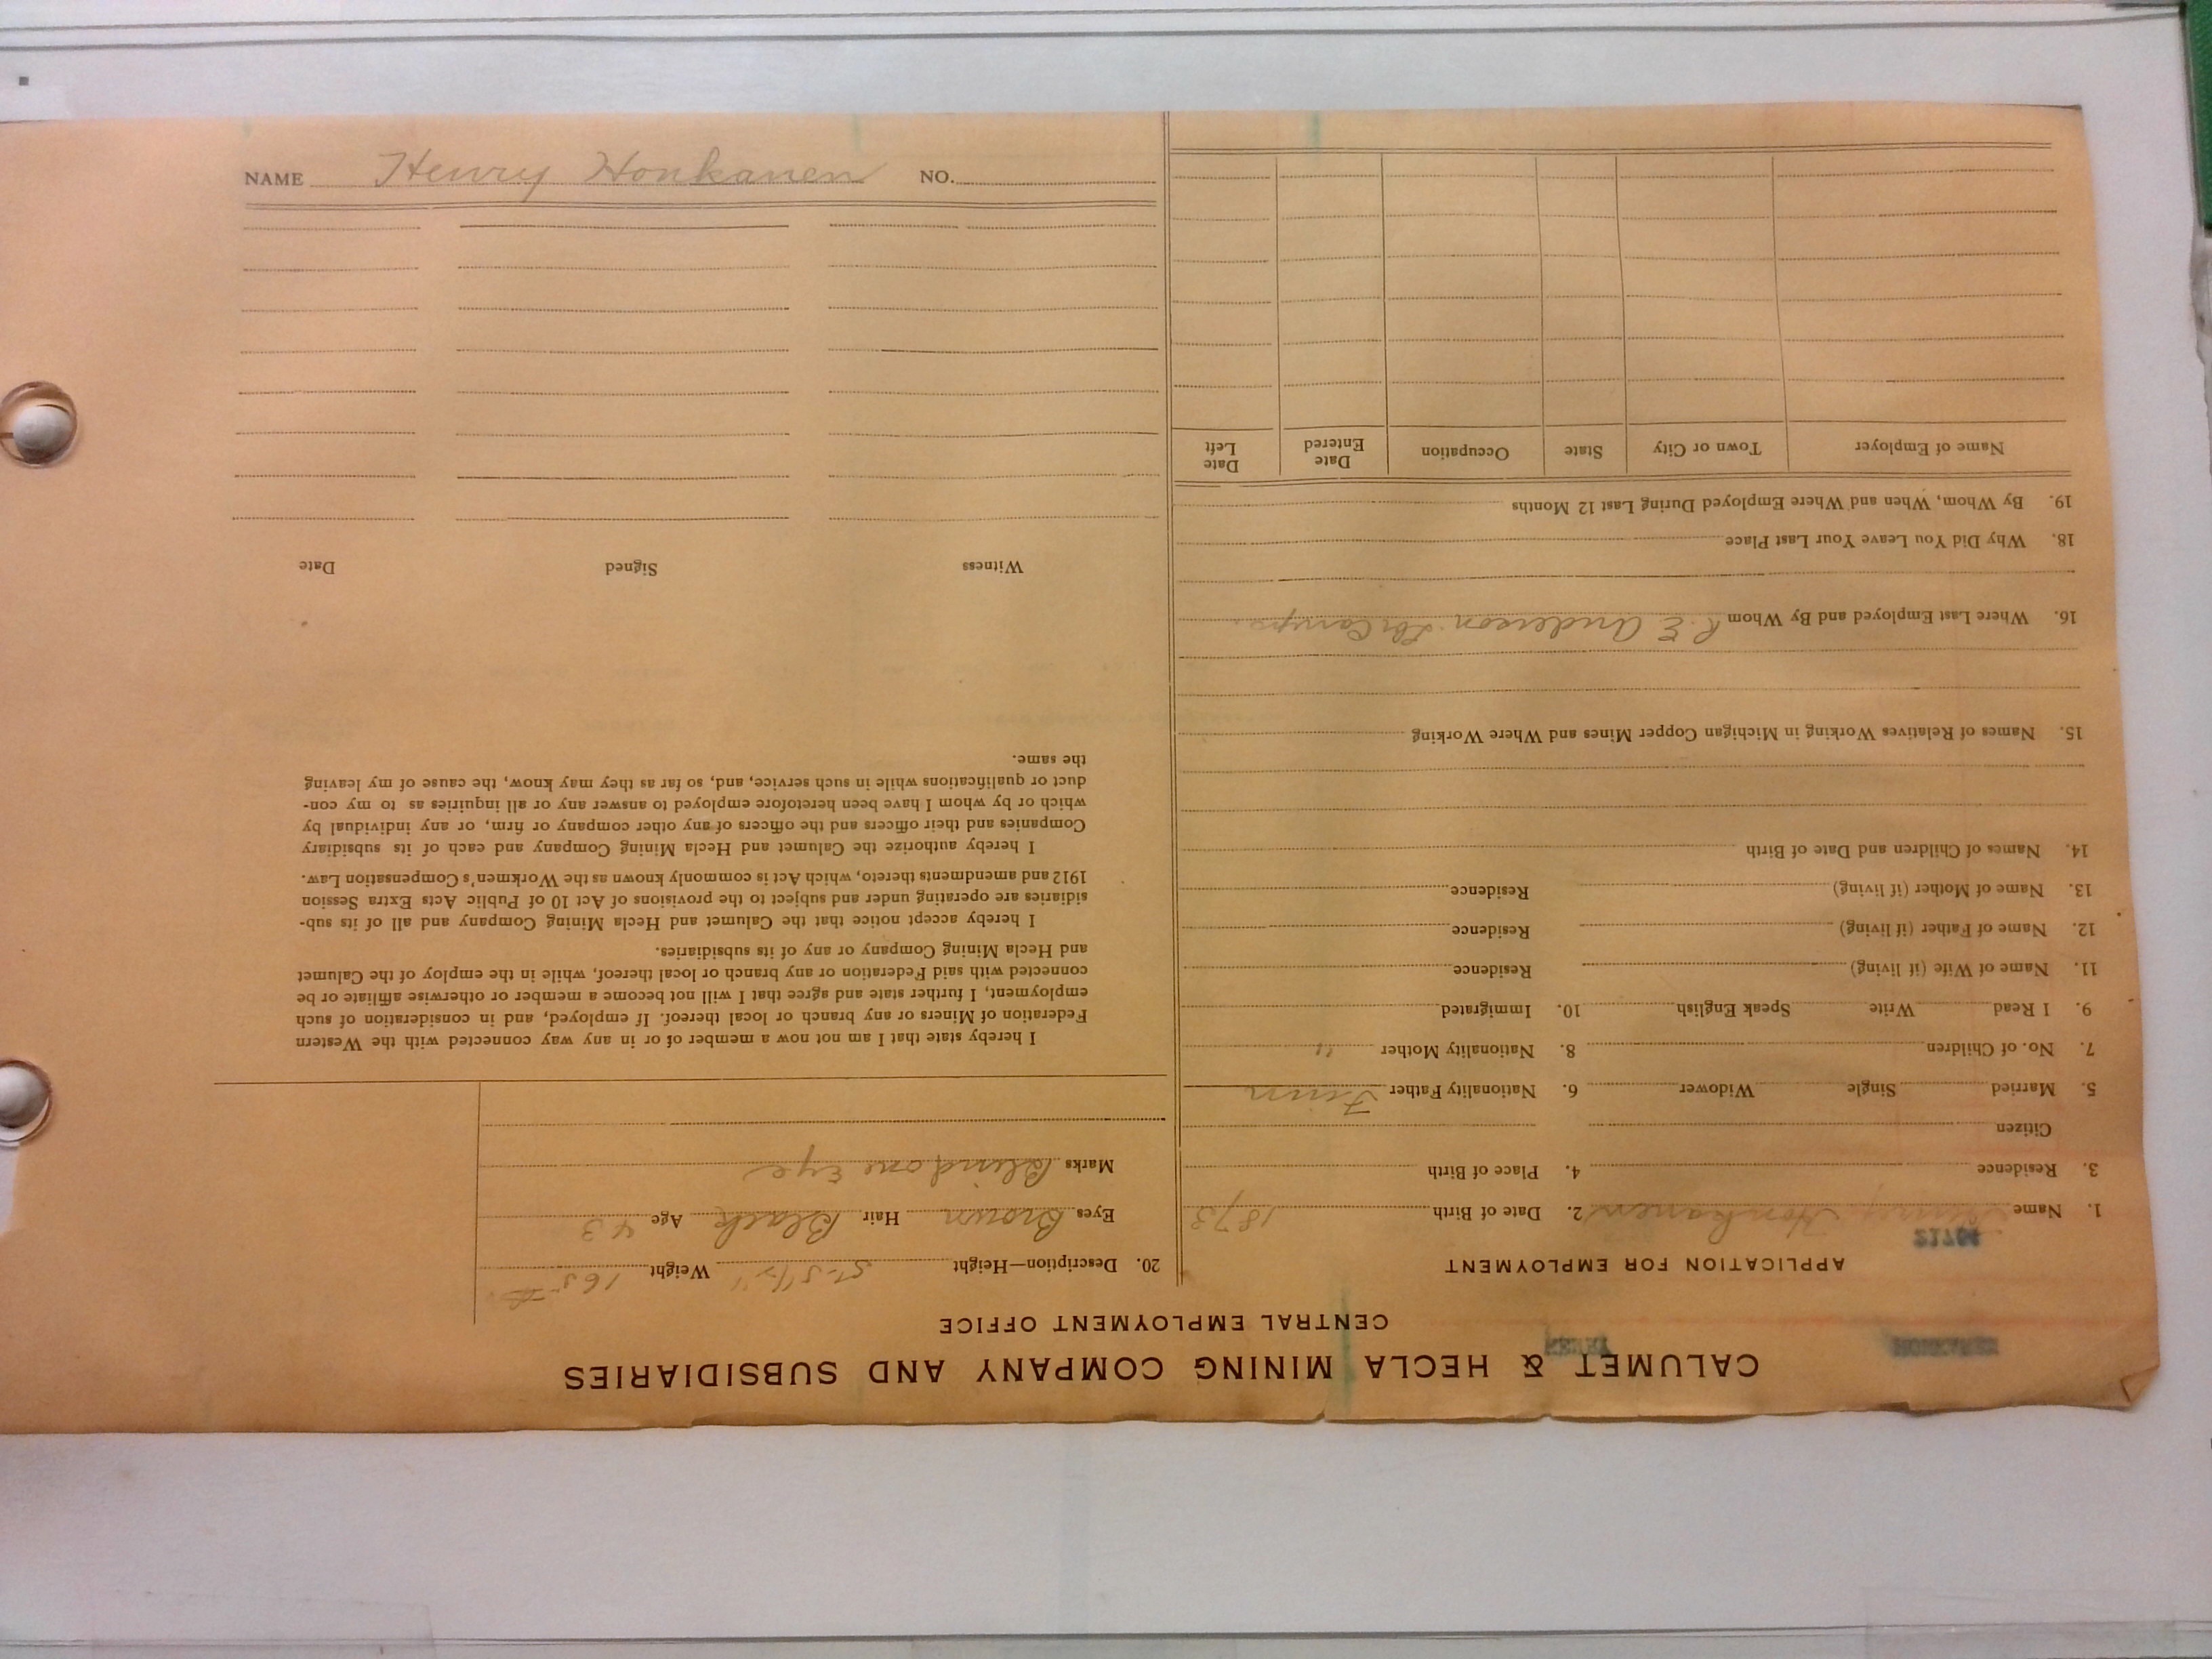 CALUMET & HECLA MINING COMPANY AND SUBSIDIARIES
CENTRAL EMPLOYMENT OFFICE
APPLICATION FOR EMPLOYMENT
1. Name Henry Honkanen 2. Date of Birth 1873
3. Residence 4. Place of Birth
Citizen
5. Married Single Widower 6. Nationality Father Finn
7. No. of Children 8. Nationality Mother "
9. I Read Write Speak English 10. Immigrated
11. Name of Wife (if living) Residence
12. Name of Father (if living) Residence
13. Name of Mother (if living) Residence
14. Names of Children and Date of Birth
15. Names of Relatives Working in Michigan Copper Mines and Where Working
16. Where Last Employed and By Whom R E Anderson Lbr Camps.
18. Why Did You Leave Your Last Place
19. By Whom, When and Where Employed During Last 12 Months
Name of Employer Town or City State Occupation Date Entered Date Left
20. Description—Height 5'-5½" Weight 165#
Eyes Brown Hair Black Age 43
Marks Blind one Eye
I hereby state that I am not now a member of or in any way connected with the Western
Federation of Miners or any branch or local thereof. If employed, and in consideration of such
employment, I further state and agree that I will not become a member or otherwise affiliate or be
connected with said Federation or any branch or local thereof, while in the employ of the Calumet
and Hecla Mining Company or any of its subsidiaries.
I hereby accept notice that the Calumet and Hecla Mining Company and all of its sub-
sidiaries are operating under and subject to the provisions of Act 10 of Public Acts Extra Session
1912 and amendments thereto, which Act is commonly known as the Workmen's Compensation Law.
I hereby authorize the Calumet and Hecla Mining Company and each of its subsidiary
Companies and their officers and the officers of any other company or firm, or any individual by
which or by whom I have been heretofore employed to answer any or all inquiries as to my con-
duct or qualifications while in such service, and, so far as they may know, the cause of my leaving
the same.
Witness Signed Date
NAME Henry Honkanen NO.